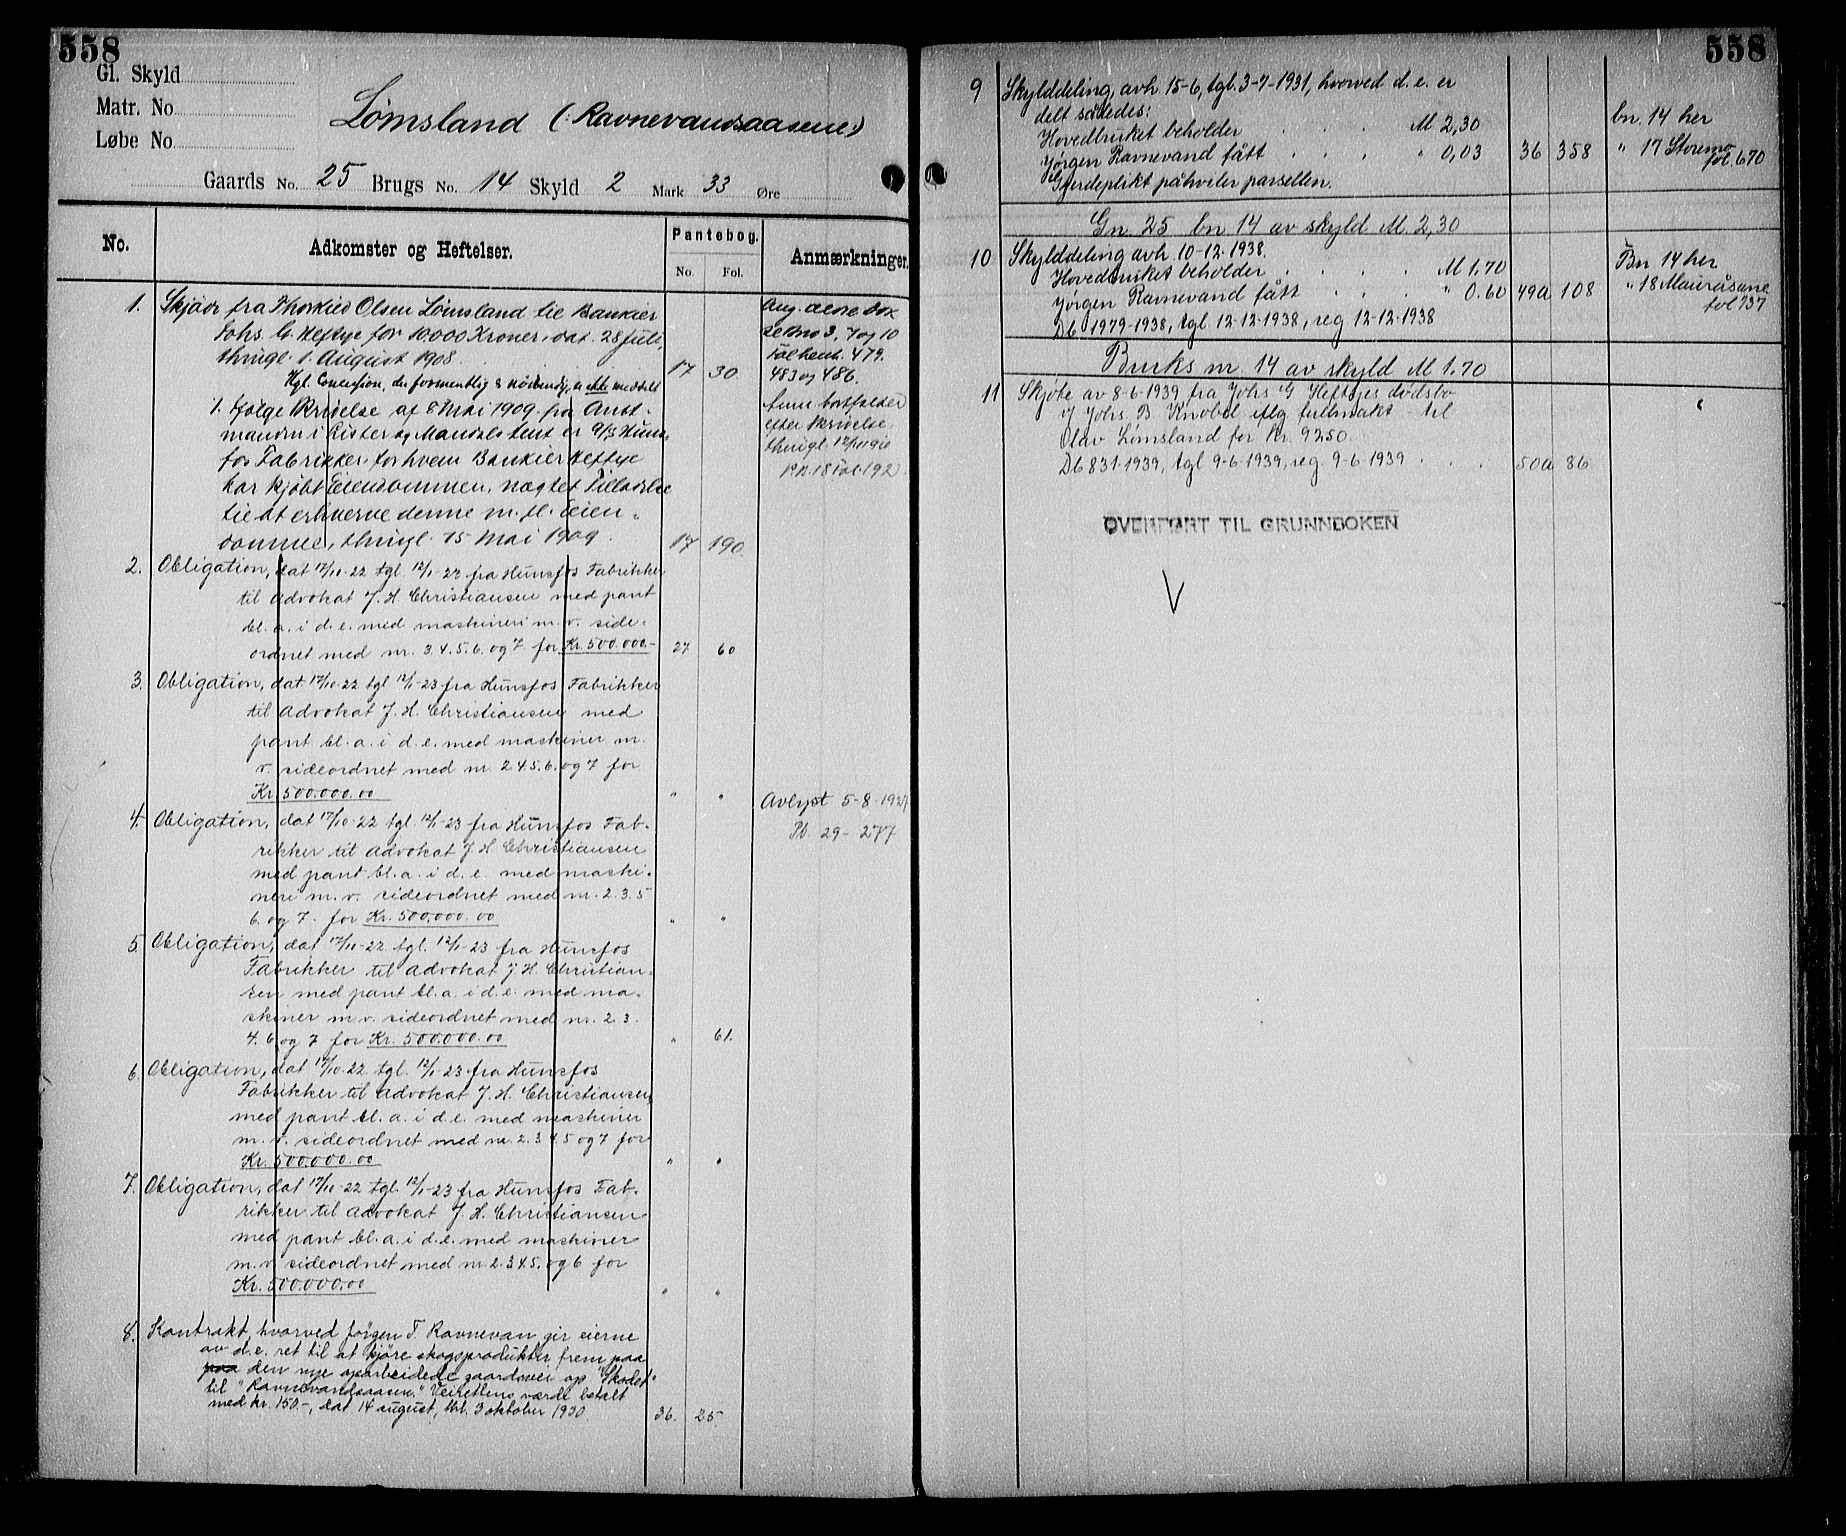 558
Gl. Skyld
Matr. No
Løbe No
Lømsland (: Ravnevandsaasene)
Gaards No. 25 Brugs No. 14 Skyld 2 Mark 33 Øre
No.
Adkomster og Heftelser.
Pantebog.
No. Fol.
Anmærkninger.
1. Skjøde fra Thorkild Olsen Lømsland til Bankier
Johs. G. Heftye for 10000 Kroner, dat. 28 Juli,
thingl. 1. August 1908. 17 30
Hgl. Concession, der formentlig er nødvendig, er ikke meddelt
1. Ifølge Skrivelse af 8 Mai 1909 fra Amt-
manden i Lister og Mandals Amt er A/S Huns-
fos Fabrikker, for hvem Bankier Heftye
har kjøbt Eiendommen, nægtet Tilladelse
til at erhverve denne m. fl. Eien-
domme, thingl. 15 Mai 1909. 17 190.
483 og 486.
efter Skrivelse,
thingl. 12/11 910
P.B. 18 Fol. 192.
2. Obligation, dat 17/10-22 tgl. 12/1-23 fra Hunsfos Fabrikker
til advokat J. H. Christiansen med pant
bl. a. i d. e. med maskineri m. v. side-
ordnet med nr. 3. 4. 5. 6. og 7 for Kr. 500.000.- 27 60
3. Obligation, dat 17/10-22 tgl 12/1-23 fra Hunsfos Fabrikker
til advokat J. H. Christiansen med
pant bl. a. i d. e. med maskiner m.
v. sideordnet med nr. 2 4. 5. 6. og 7 for
Kr. 500.000.00 " "
Avlyst 5-8-1927
Pb. 29 - 277
4. Obligation, dat 17/10-22 tgl. 12/1-23 fra Hunsfos Fab-
rikker til advokat J. H Christiansen
med pant bl. a. i d. e. med maski-
neri m. v. sideordnet med nr. 2. 3. 5
6. og 7. for Kr. 500.000.00 " "
5 Obligation, dat 17/10-22 tgl. 12/1-23 fra Hunsfos
Fabrikker til advokat J. H. Christian-
sen med pant bl. a. i d. e. med ma-
skiner m. v. sideordnet med nr. 2 3.
4. 6. og 7 for Kr. 500.000.00 " 61.
6. Obligation, dat 17/10-22 tgl. 12/1-23 fra Hunsfos
Fabrikker til advokat J. H. Christiansen
med pant bl. a. i d. e. med maskiner
m. v. sideordnet med nr. 2. 3. 4. 5 og 7 for
Kr. 500.000.00 " "
7. Obligation, dat 17/10-22 tgl. 12/1-23 fra Hunsfos Fab-
rikker til advokat J. H. Christiansen
med pant bl. a. i d. e. med maskiner
m. v. sideordnet med nr. 2. 3. 4. 5. og 6 for
Kr. 500.000.00 " "
8. Kontrakt, hvorved Jørgen T. Ravnevan gir eierne
av d. e. ret til at kjøre skogsprodukter frem paa
paa den nye oparbeidede gaardsvei op "Skodet"
til "Ravnevandsaasen." Veirettens værdi betalt
med kr. 150.-, dat 14 august, thl. 3 oktober 1930. 36. 25.
558
9 Skylddeling, avh. 15-6, tgl. 3-7-1931, hvorved d. e. er
delt således:
Hovedbruket beholder . . . . M 2,30 bn. 14 her
Jørgen Ravnevand fått . . . . " 0,03 36 358 " 17 Storemo fol. 670
Gjerdeplikt påhviler parsellen.
Gn. 25 bn 14 av skyld M 2,30
10 Skylddeling avh. 10-12-1938.
Hovedbruket beholder . . . . M 1.70 Bn 14 her
Jørgen Ravnevand fått . . . . " 0.60 49a 108 " 18 Mauråsane fol 737
Db 1979-1938, tgl 12-12-1938, reg 12-12-1938
Bruks nr. 14 av skyld M 1.70
11 Skjøte av 8-6-1939 fra Johs. G Heftyes dødsbo
v/ Johs. B. Knobel iflg fullmakt - til
Olav Lømsland for Kr. 9250
Db 831-1939, tgl 9-6-1939, reg 9-6-1939 . . . 50a 86
OVERFØRT TIL GRUNNBOKEN
V